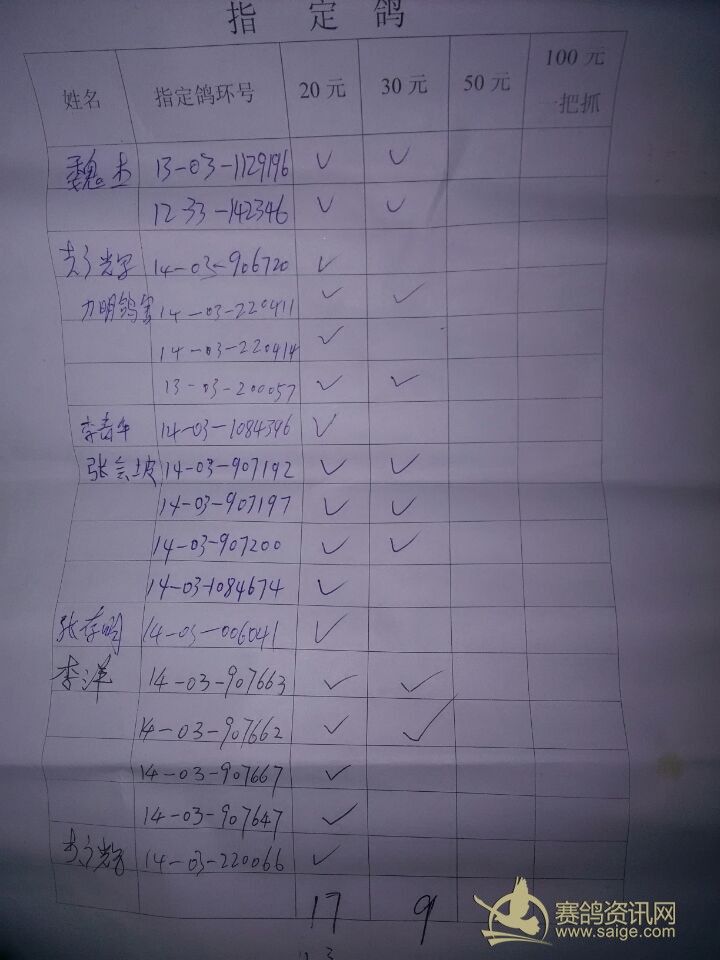 指 定 鸽
姓名 指定鸽环号 20元 30元 50元 100元
一把抓
魏杰 13-03-1129196 ✓ ✓
12-33-142346 ✓ ✓
14-03-906720 ✓
力明鸽舍 14-03-220411 ✓ ✓
14-03-220414 ✓
13-03-200057 ✓ ✓
李春牛 14-03-1084396 ✓
张会坡 14-03-907192 ✓ ✓
14-03-907197 ✓ ✓
14-03-907200 ✓ ✓
14-03-1084674 ✓
张存明 14-03-006041 ✓
李洋 14-03-907663 ✓ ✓
14-03-907662 ✓ ✓
14-03-907667 ✓
14-03-907647 ✓
14-03-220066 ✓
17 9
赛鸽资讯网
www.saige.com